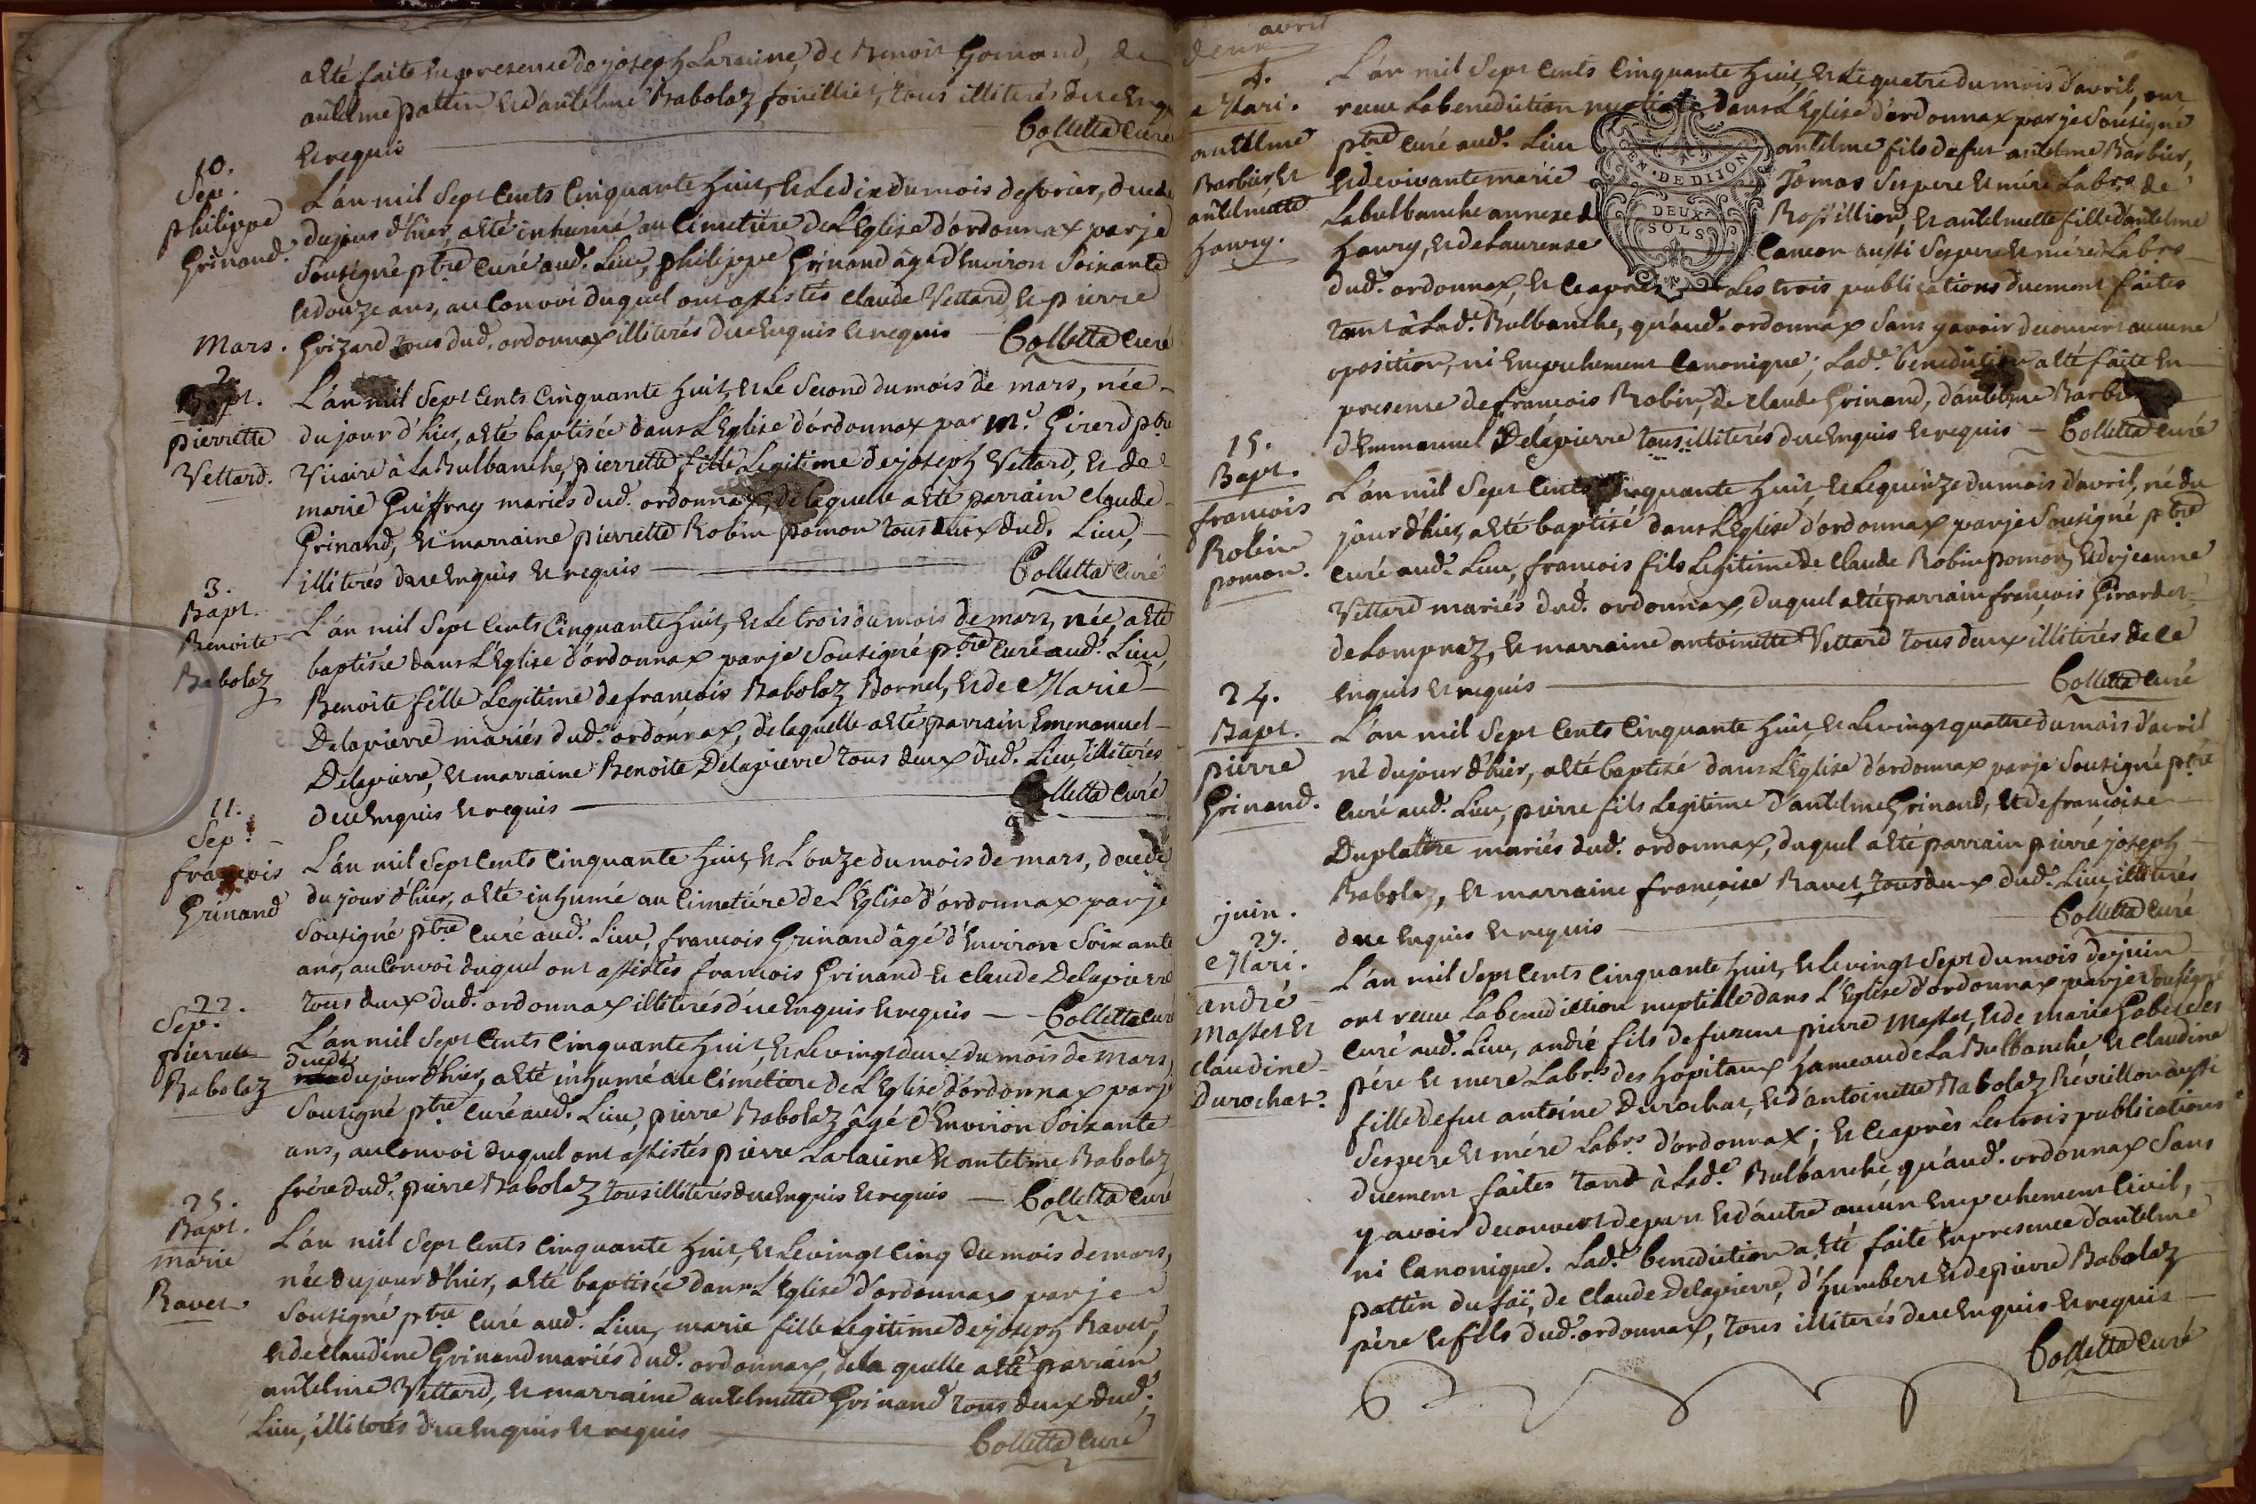 a été faite en presence de joseph Laraine, de Benoit Grinand, de
antelme pattin et d'antelme Babolaz fouillier, tous illiterés de ce enquis
et requis Colletta curé
10.
Sep.
philippe
Grinand.
L'an mil Sept Cents Cinquante huit, et Le dix du mois de fevrier, decedé
du jour d'hier, a été inhumé au Cimetiére de L'Eglise d'ordonnax par je
Sousigné ptre Curé aud. Lieu, philippe Grinand âgé d'Environ Soixante
et douze ans, au Convoi duquel ont assistés claude Vettard, et pierre
Grizard tous dud. ordonnax illiterés de ce Enquis et requis — Colletta Curé
Mars.
2.
Bapt.
pierrette
Vettard.
L'an mil Sept Cents Cinquante huit, et Le Second du mois de mars, née
du jour d'hier, a été baptisée dans L'Eglise d'ordonnax par Mr. Girerd ptre
Vicaire à La Bulbanche, pierrette fille Legitime de joseph Vettard, et de
marie Guiffray mariés dud. ordonnax, de laquelle a été parrain Claude
Grinand, et marraine pierrette Robin pomon tous deux dud. Lieu,
illiterés de ce Enquis et requis — Colletta Curé
3.
Bapt.
Benoite
Babolaz
L'an mil Sept Cents Cinquante huit, et Le trois du mois de mars, née, a été
baptisée dans L'Eglise d'ordonnax par je Sousigné ptre Curé aud. Lieu,
Benoite fille Legitime de francois Babolaz Bornel, et de Marie
Delapierre mariés dud. ordonnax, de laquelle a été parrain Emmanuel
Delapierre, et marraine Benoite Delapierre tous deux dud. Lieu, illiterés
de ce Enquis et requis — Colletta Curé
11.
Sep.
francois
Grinand
L'an mil Sept Cents Cinquante huit, et L'onze du mois de mars, decedé
du jour d'hier, a été inhumé au Cimetiére de L'Eglise d'ordonnax par je
Sousigné ptre Curé aud. Lieu, francois Grinand âgé d'Environ Soixante
ans, au Convoi duquel ont assistés francois Grinand et claude Delapierre
tous deux dud. ordonnax illiterés de ce Enquis et requis — Colletta curé
22.
Sep.
pierre
Babolaz
L'an mil Sept Cents Cinquante huit, et Le vingt deux du mois de mars,
decedé
du jour d'hier, a été inhumé au Cimétiere de L'Eglise d'ordonnax par je
Sousigné ptre Curé aud. Lieu, pierre Babolaz âgé d'Environ Soixante
ans, au Convoi duquel ont assistés pierre Laraine et antelme Babolaz
frére dud. pierre Babolaz tous illiterés de ce Enquis et requis — Colletta curé
25.
Bapt.
marie
Ravet
L'an mil Sept Cents Cinquante huit, et Le vingt Cinq du mois de mars,
née du jour d'hier, a été baptisée dans L'Eglise d'ordonnax par je
Sousigné ptre Curé aud. Lieu, marie fille Legitime de joseph Ravet,
et de claudine Grinand mariés dud. ordonnax, de la quelle a été parrain
antelme Vettard, et marraine antelmette Grinand tous deux dud.
Lieu, illiterés de ce Enquis et requis — Colletta Curé
avril
deux
4.
Mari.
antelme
Barbier et
antelmete
haury.
L'an mil Sept Cents Cinquante huit, et Le quatre du mois d'avril, ont
receu La benediction nuptiale dans L'Eglise d'ordonnax par je Sousigné
ptre Curé aud. Lieu antelme fils de fut antelme Barbier,
et de vivante marie Tomas Ses pere et mére Labrs. de
La bulbanche annexe de Rossillion, et antelmette fille d'antelme
haury, et de Laurense Cancon aussi Ses pere et mére Labrs
dud. ordonnax, et ce aprés Les trois publications duement faites
tant à Lade. Bulbanche, qu'aud. ordonnax Sans y avoir decouvert aucune
oposition, ni Empechement Canonique; Lade. benediction a été faite En
presence de francois Robin, de claude Grinand, d'antelme Barbier
d'Emmanuel Delapierre tous illiterés de ce Enquis et requis — Colletta Curé
GEN. DE DIJON
DEUX
SOLS
15.
Bapt.
francois
Robin
pomon.
L'an mil Sept Cents Cinquante huit, et Le quinze du mois d'avril, né du
jour d'hier, a été baptisé dans L'Eglise d'ordonnax par je Sousigné ptre
Curé aud. Lieu, francois fils Legitime de Claude Robin pomon, et de jeanne
Vettard mariés dud. ordonnax, duquel a été parrain francois Girardet
de Lompnaz, et marraine antoinette Vettard tous deux illiterés de ce
Enquis et requis — Colletta Curé
24.
Bapt.
pierre
Grinand.
L'an mil Sept Cents Cinquante huit et Le vingt quattre du mois d'avril
né du jour d'hier, a été baptisé dans L'Eglise d'ordonnax par je Sousigné ptre
Curé aud. Lieu, pierre fils Legitime d'antelme Grinand, et de francoise
Duplattre mariés dud. ordonnax, duquel a été parrain pierre joseph
Babolaz, et marraine francoise Ravet tous deux dud. Lieu, illiterés
de ce Enquis et requis — Colletta Curé
juin.
27.
Mari.
andré
Masset et
claudine
Durochat.
L'an mil Sept Cents Cinquante huit, et Le vingt Sept du mois de juin
ont receu La benediction nuptiale dans L'Eglise d'ordonnax par je Sousigné
Curé aud. Lieu, andré fils de furent pierre Masset, et de marie Gabet Ses
pére et mere Labrs. des hopitaux hameau de La Bulbanche et claudine
fille de fut antoine Durochat, et d'antoinette Babolaz Révrillon aussi
Ses pere et mére Labrs. d'ordonnax; et ce après Les trois publications
duement faites tant à Lade. Bulbanche qu'aud. ordonnax Sans
y avoir decouvert de part et d'autre aucun Empechement Civil,
ni Canonique. Lade. benediction a été faite En presence d'antelme
pattin du faï, de claude Delapierre, d'humbert et de pierre Babolaz
père et fils dud. ordonnax, tous illiterés de ce Enquis et requis
Colletta Curé